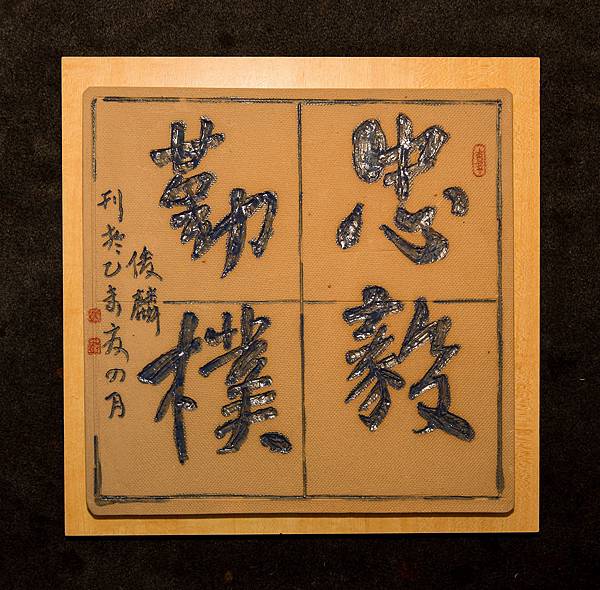 忠毅
勤樸
俊麟
刊於乙未夏四月